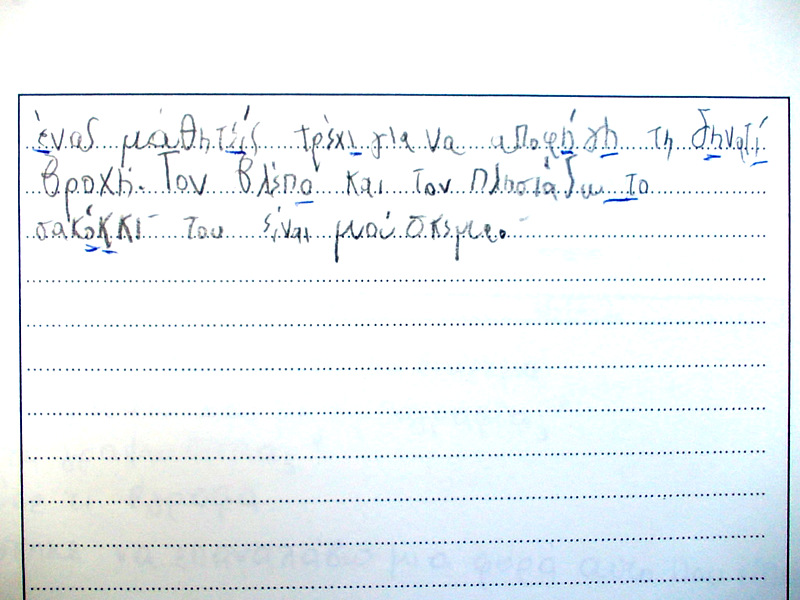 ένας μαθητέις τρέχι για να αποφήγη τη δηνατή
βροχή. Τον βλέπο και τον πλησιάζω το
σακόκκι του είναι μούσκεμα.